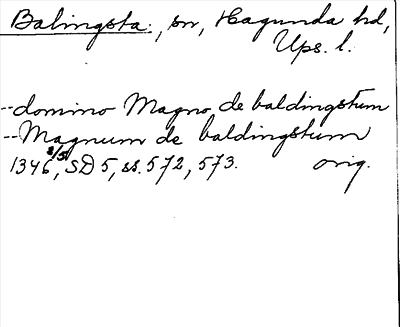 Balingsta:, sn, Hagunda hd,
Ups. l.
--domino Magno de baldingstum
--Magnum de baldingstum
1346 8/5, SD 5, ss. 572, 573. orig.